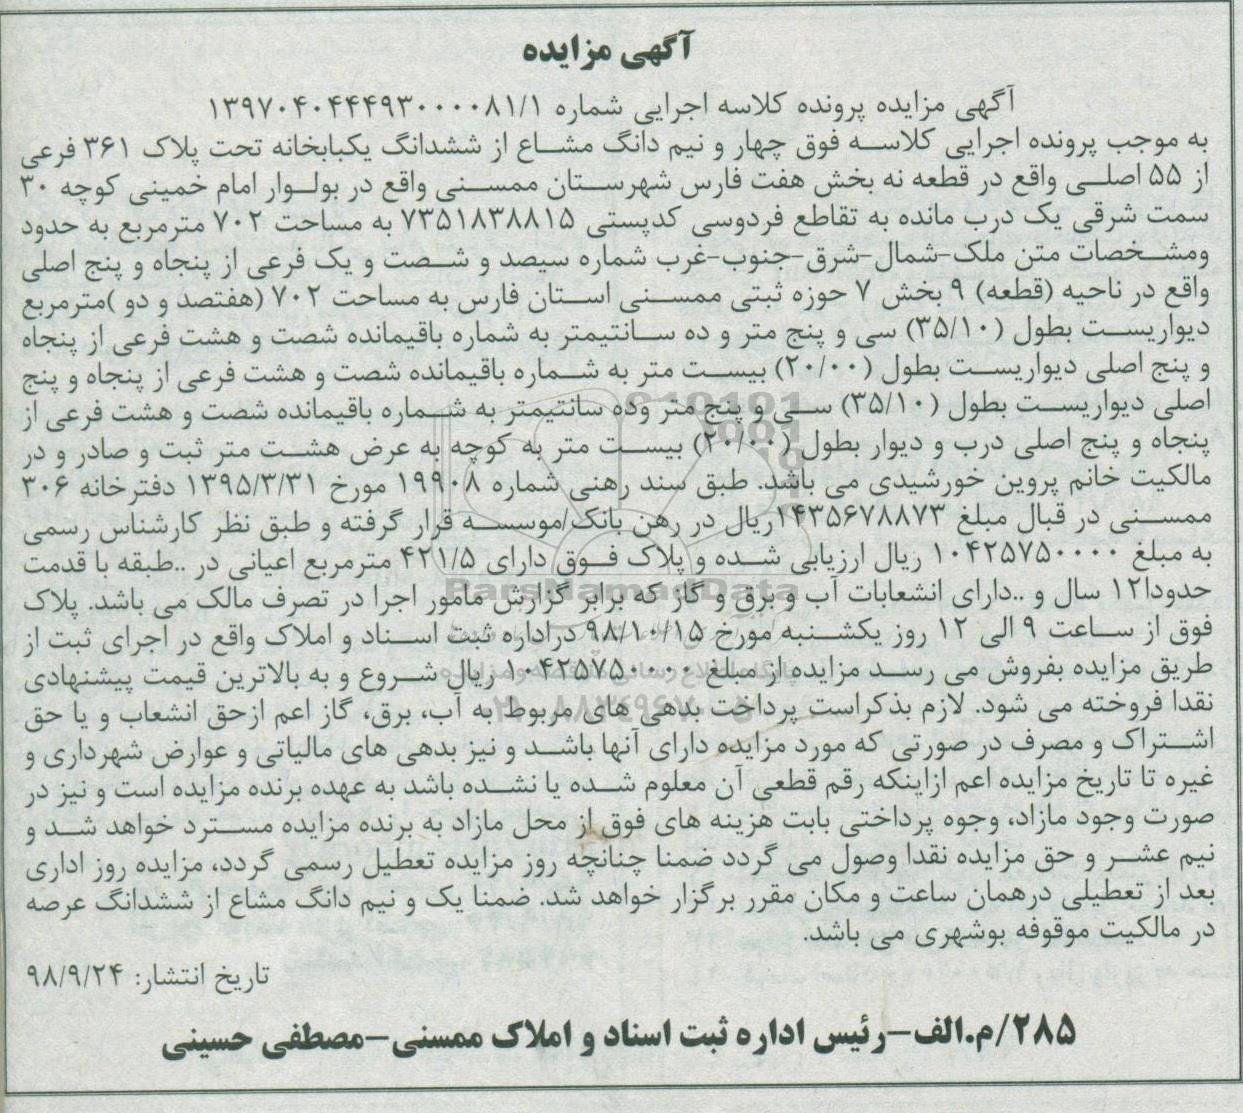 آگهی مزایده
آگهی مزایده پرونده کلاسه اجرایی شماره ۱۳۹۷۰۴۰۴۴۴۹۳۰۰۰۰۸۱/۱
به موجب پرونده اجرایی کلاسه فوق چهار و نیم دانگ مشاع از ششدانگ یکبابخانه تحت پلاک ۳۶۱ فرعی
از ۵۵ اصلی واقع در قطعه نه بخش هفت فارس شهرستان ممسنی واقع در بولوار امام خمینی کوچه ۳۰
سمت شرقی یک درب مانده به تقاطع فردوسی کدپستی ۷۳۵۱۸۳۸۸۱۵ به مساحت ۷۰۲ مترمربع به حدود
ومشخصات متن ملک-شمال-شرق-جنوب-غرب شماره سیصد و شصت و یک فرعی از پنجاه و پنج اصلی
واقع در ناحیه (قطعه) ۹ بخش ۷ حوزه ثبتی ممسنی استان فارس به مساحت ۷۰۲ (هفتصد و دو )مترمربع
دیواریست بطول (۳۵/۱۰) سی و پنج متر و ده سانتیمتر به شماره باقیمانده شصت و هشت فرعی از پنجاه
و پنج اصلی دیواریست بطول (۲۰/۰۰) بیست متر به شماره باقیمانده شصت و هشت فرعی از پنجاه و پنج
اصلی دیواریست بطول (۳۵/۱۰) سی و پنج متر وده سانتیمتر به شماره باقیمانده شصت و هشت فرعی از
پنجاه و پنج اصلی درب و دیوار بطول (۲۰/۰۰) بیست متر به کوچه به عرض هشت متر ثبت و صادر و در
مالکیت خانم پروین خورشیدی می باشد. طبق سند رهنی شماره ۱۹۹۰۸ مورخ ۱۳۹۵/۳/۳۱ دفترخانه ۳۰۶
ممسنی در قبال مبلغ ۱۴۳۵۶۷۸۸۷۳ریال در رهن بانک/موسسه قرار گرفته و طبق نظر کارشناس رسمی
به مبلغ ۱۰۴۲۵۷۵۰۰۰۰ ریال ارزیابی شده و پلاک فوق دارای ۴۲۱/۵ مترمربع اعیانی در ..طبقه با قدمت
حدودا۱۲ سال و ..دارای انشعابات آب و برق و گاز که برابر گزارش مامور اجرا در تصرف مالک می باشد. پلاک
فوق از ساعت ۹ الی ۱۲ روز یکشنبه مورخ ۹۸/۱۰/۱۵ دراداره ثبت اسناد و املاک واقع در اجرای ثبت از
طریق مزایده بفروش می رسد مزایده از مبلغ ۱۰۴۲۵۷۵۰۰۰۰ ریال شروع و به بالاترین قیمت پیشنهادی
نقدا فروخته می شود. لازم بذکراست پرداخت بدهی های مربوط به آب، برق، گاز اعم ازحق انشعاب و یا حق
اشتراک و مصرف در صورتی که مورد مزایده دارای آنها باشد و نیز بدهی های مالیاتی و عوارض شهرداری و
غیره تا تاریخ مزایده اعم ازاینکه رقم قطعی آن معلوم شده یا نشده باشد به عهده برنده مزایده است و نیز در
صورت وجود مازاد، وجوه پرداختی بابت هزینه های فوق از محل مازاد به برنده مزایده مسترد خواهد شد و
نیم عشر و حق مزایده نقدا وصول می گردد ضمنا چنانچه روز مزایده تعطیل رسمی گردد، مزایده روز اداری
بعد از تعطیلی درهمان ساعت و مکان مقرر برگزار خواهد شد. ضمنا یک و نیم دانگ مشاع از ششدانگ عرصه
در مالکیت موقوفه بوشهری می باشد.
تاریخ انتشار: ۹۸/۹/۲۴
۲۸۵/م.الف-رئیس اداره ثبت اسناد و املاک ممسنی-مصطفی حسینی
ParsNamadData